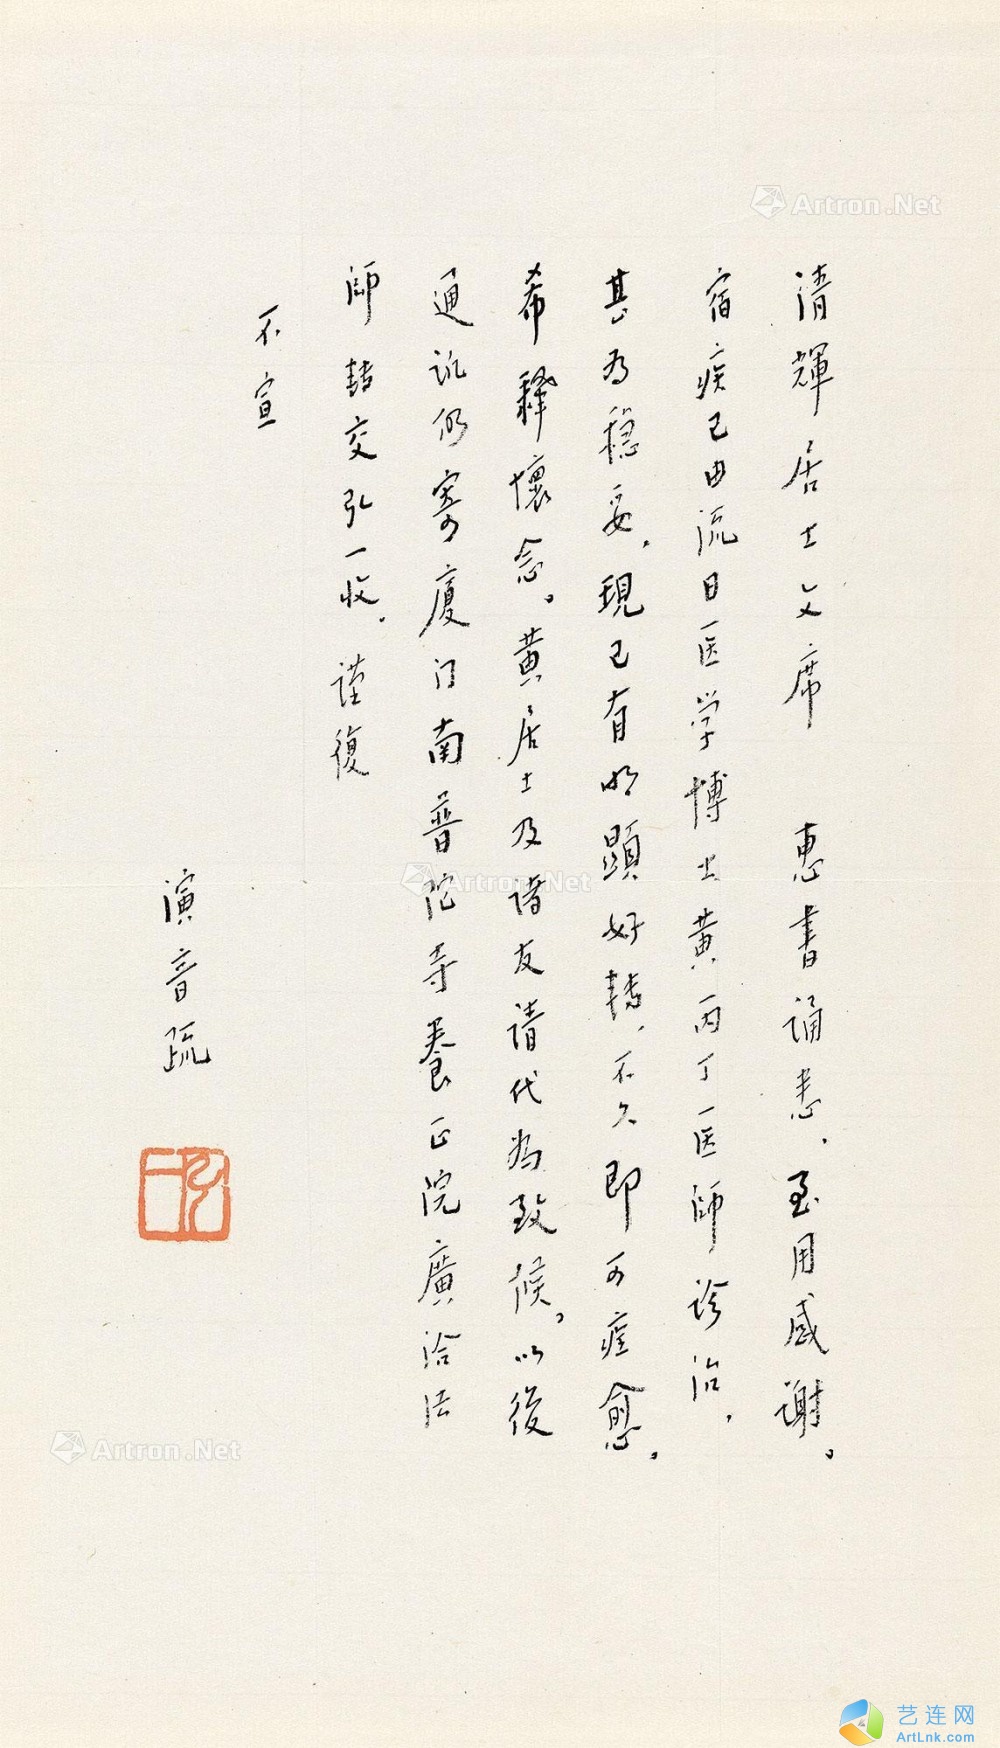 清輝居士文席 惠書誦悉，至用感谢。
宿疾已由流日医学博士黄丙丁医師诊治，
甚为穩妥，現已有明顯好轉，不久即可痊愈。
希釋懷念。黄居士及諸友請代为致候，以後
通訊仍寄廈门南普陀寺養正院廣洽法
師轉交弘一收，谨復
不宣
演音疏
弘一
Artron.Net
Artron.Net
Artron.Net
艺连网
ArtLnk.com